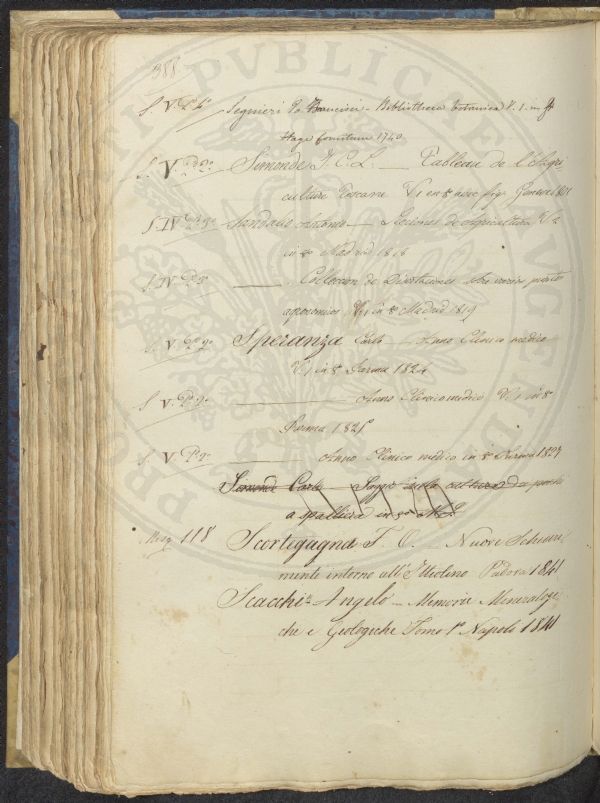 388
S. V. Segnieri Jo. Francisci - Bibliotheca botanica V. 1. in
Hagæ comitum 1740
S. V. P. 9º Simonde J. C. L. — Tableau de l'Agri-
culture Toscane V. 1 en 8º avec fig. Geneve 1801
S. IV P. 9º Sandalio Antonio — Lecciones de Agricultura V. 2
in 8º Madrid 1818
S. IV P. — Colleccion de Disertaciones sobre varios puntos
agronomicos V. 1 in 8º Madrid 1819
S. V. P. 9º Speranza Carlo — Anno Clinico medico
V. 1 in 8º Parma 1824
S. V. P. 9º — Anno Clinico medico V. 1 in 8º
Parma 1825
S. V. P. 9º — Anno Clinico medico in 8º Parma 1827
Simonde Carlo — Saggio sulla cultura dei peschi
a spalliera in 8º
Misc. 118 Scortegagna F. O. — Nuovi Schiari-
menti intorno all'Ittiolino Padova 1841
Scacchi Angelo — Memorie Mineralogi-
che e Geologiche Tomo 1º Napoli 1841
PVBLICS